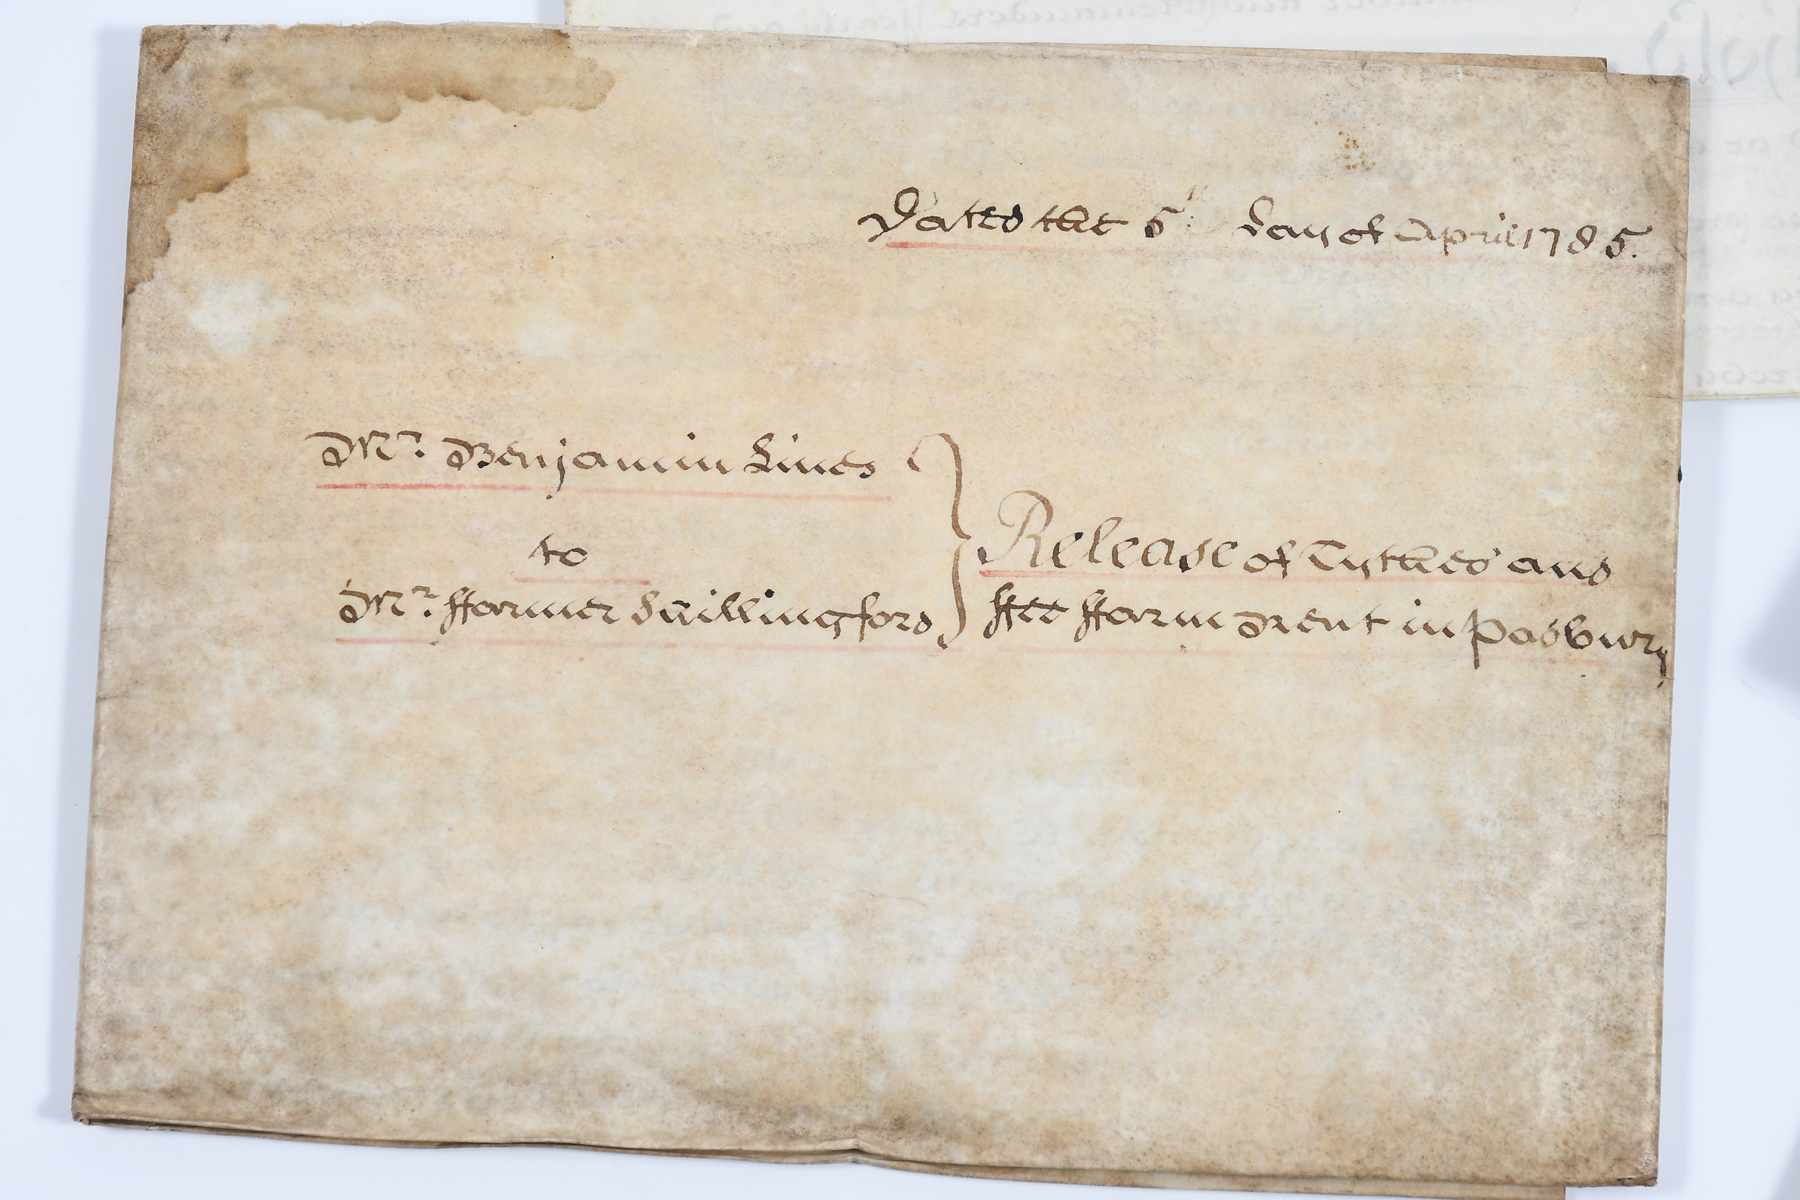 Dated the 5th day of April 1785.
Mr. Benjamin Lines
to
Mr. ffarmer Shillingford
Release of Tythes and
ffee ffarm Rent in Padbury